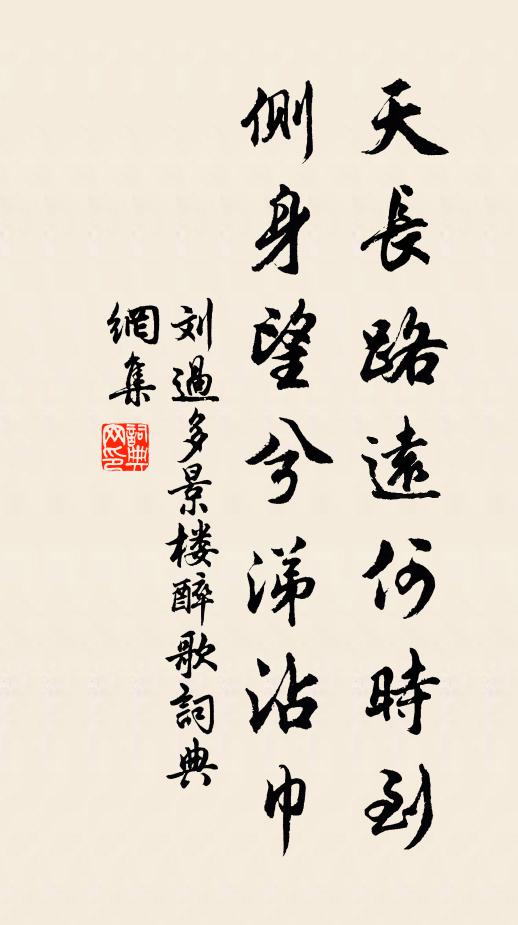 天長路遠何時到
側身望兮涕沾巾
刘過多景楼醉歌詞典
網集
詞典網印